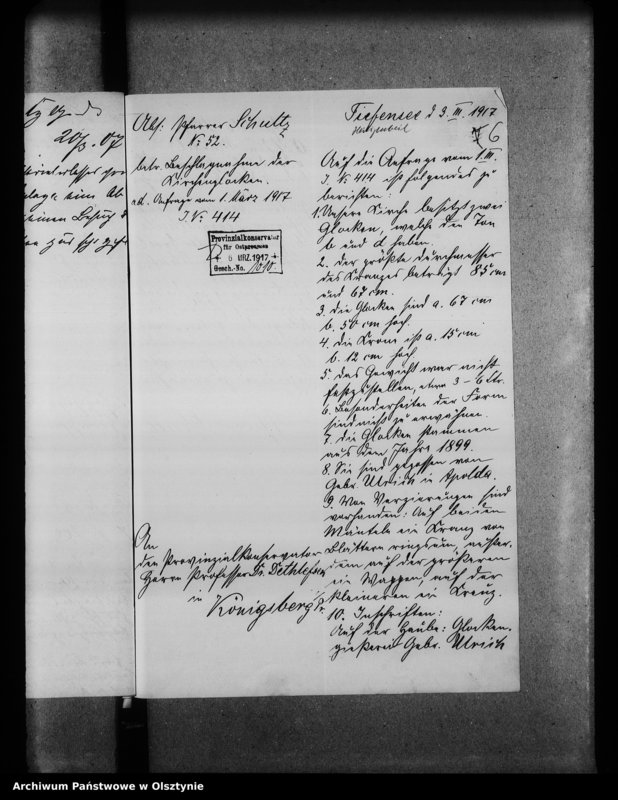 20/3. 07
Abs: Pfarrer Schultz
No 52.
betr. Beschlagnahme der
Kirchenglocken.
ad. Anfrage vom 1. März 1917
J. No 414
Provinzialkonservator
für Ostpreussen
6 MRZ. 1917
Gesch.-No. 1010.
An
den Provinzialkonservator
Herrn Professor Dr. Dethlefsen
in
Königsberg i/Pr
Tiefensee d 3. III. 1917
Heiligenbeil
6
Auf die Anfrage vom 1. III.
J. No 414 ist folgendes zu
berichten:
1. Unsere Kirche besitzt zwei
Glocken, welche den Ton
b und d haben.
2. der größte Durchmesser
des Kranzes beträgt 85 cm
und 67 cm.
3. die Glocken sind a. 67 cm
b. 50 cm hoch.
4. die Krone ist a. 15 cm
b. 12 cm hoch
5. das Gewicht war nicht
festzustellen, etwa 3-6 Ctr.
6. Besonderheiten der Form
sind nicht zu erwähnen.
7. die Glocken stammen
aus dem Jahre 1899.
8. Sie sind gegossen von
Gebr. Ulrich in Apolda.
9. Von Verzierungen sind
vorhanden: Auf beiden
Mänteln ein Kranz von
Blättern ringsum, außer-
dem auf der größeren
ein Wappen, auf der
kleineren ein Kreuz.
10. Inschriften:
Auf der Haube: Glocken-
gießerei Gebr. Ulrich
Archiwum Państwowe w Olsztynie